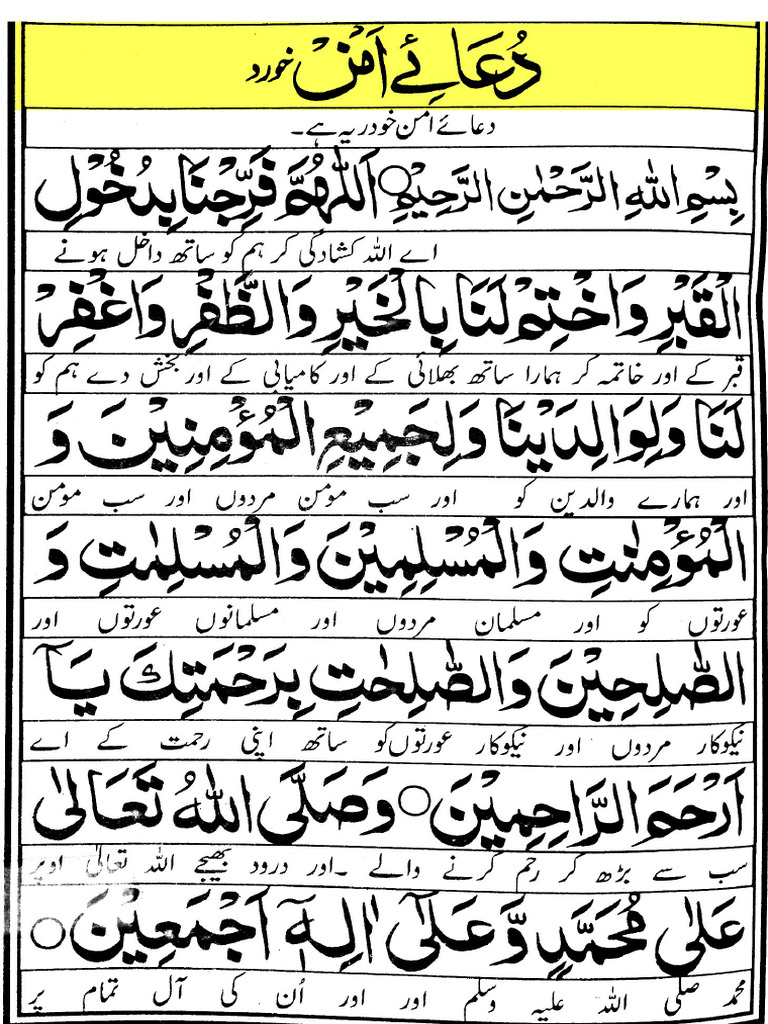 دُعَائے اَمَنْ خورد
دعائے امن خودر یہ ہے۔
بِسْمِ اللهِ الرَّحْمٰنِ الرَّحِيْمِ○اَللّٰهُمَّ فَرِّجْنَا بِدُخُوْلِ
اے اللہ کشادگی کر ہم کو ساتھ داخل ہونے
الْقَبْرِ وَاخْتِمْ لَنَا بِالْخَيْرِ وَالظَّفْرِ وَاغْفِرْ
قبر کے اور خاتمہ کر ہمارا ساتھ بھلائی کے اور کامیابی کے اور بخش دے ہم کو
لَنَا وَلِوَالِدَيْنَا وَلِجَمِيْعِ الْمُؤْمِنِيْنَ وَ
اور ہمارے والدین کو اور سب مؤمن مردوں اور سب مؤمن
الْمُؤْمِنٰتِ وَالْمُسْلِمِيْنَ وَالْمُسْلِمٰتِ وَ
عورتوں کو اور مسلمان مردوں اور مسلمانوں عورتوں اور
الصّٰلِحِيْنَ وَالصّٰلِحٰتِ بِرَحْمَتِكَ يَآ
نیکوکار مردوں اور نیکوکار عورتوں کو ساتھ اپنی رحمت کے اے
اَرْحَمَ الرَّاحِمِيْنَ○وَصَلَّى اللهُ تَعَالىٰ
سب سے بڑھ کر رحم کرنے والے ۔اور درود بھیجے اللہ تعالیٰ اوپر
عَلىٰ مُحَمَّدٍ وَّعَلىٰٓ اٰلِهٖٓ اَجْمَعِيْنَ○
محمد صلی اللہ علیہ وسلم اور اور اُن کی آل تمام پر